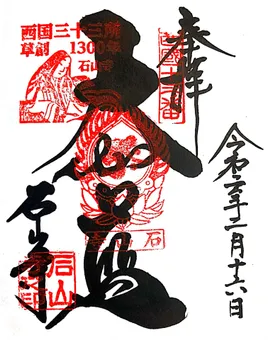 奉拝
西国十三番
西国三十三所
草創 1300年
石山寺
大伽藍
令和
年
月十六日
石山寺
石山